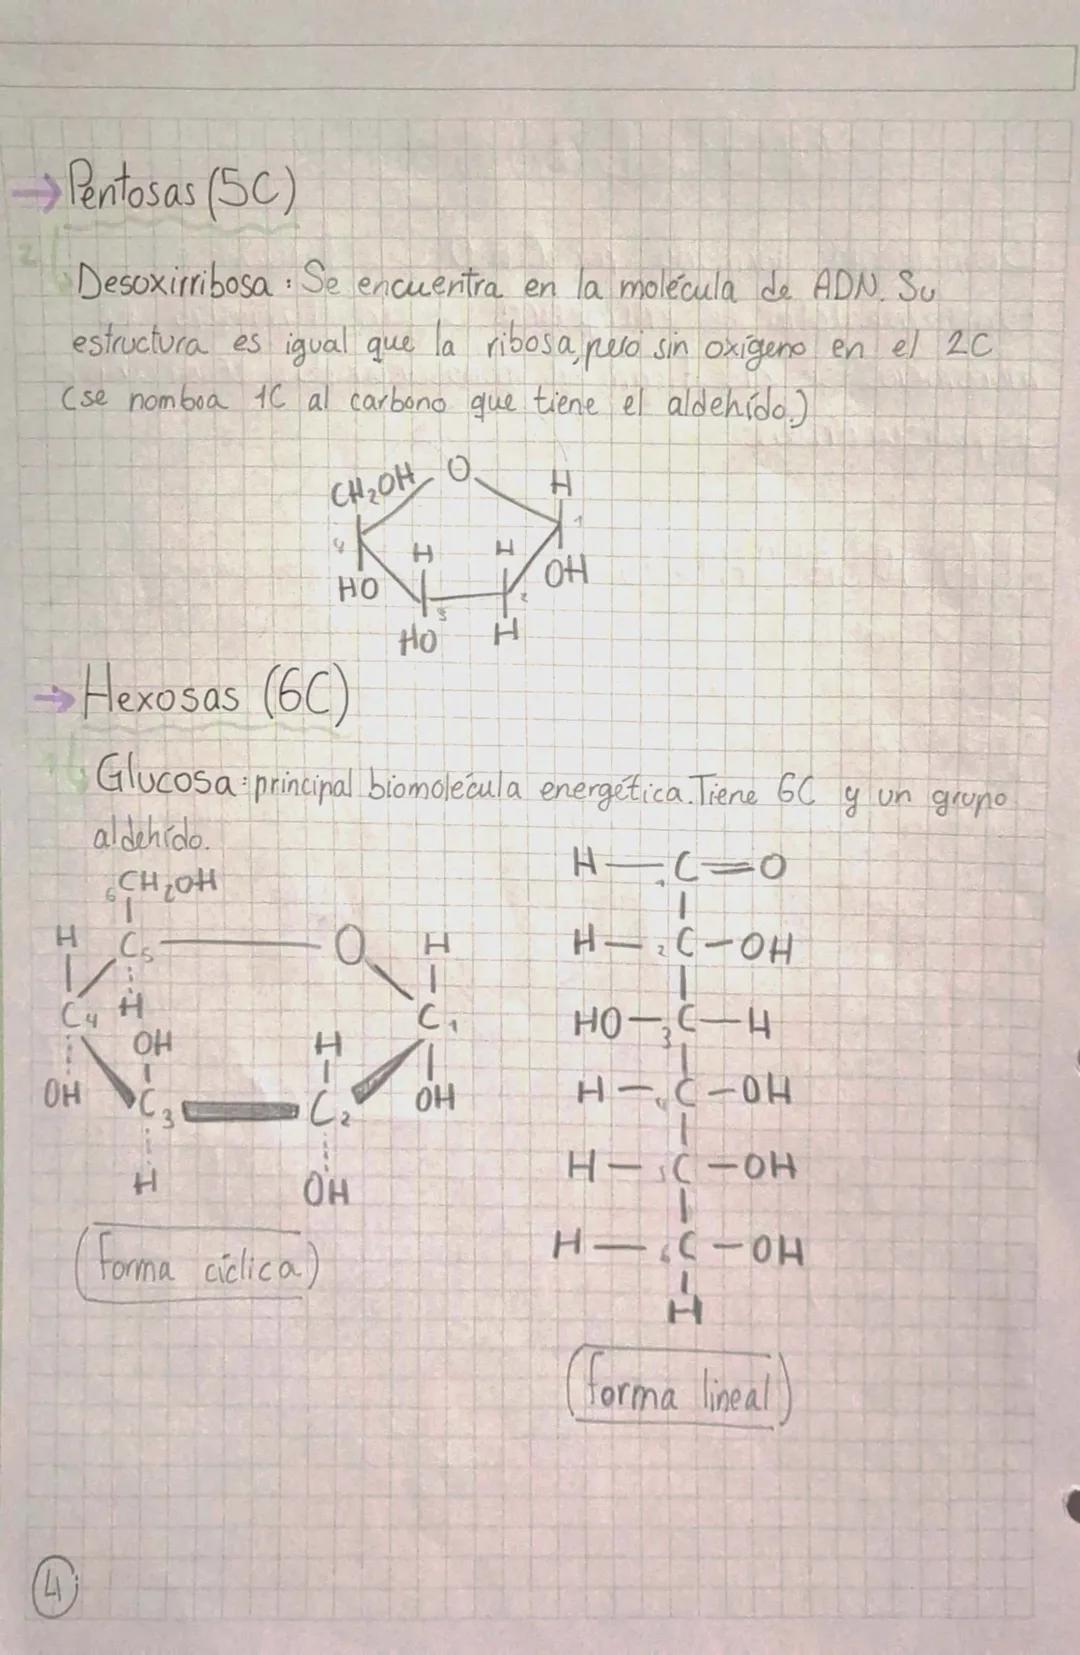 → Pentosas (5C)
2
Desoxirribosa: Se encuentra en la molécula de ADN. Su
estructura es igual que la ribosa, pero sin oxígeno en el 2C
(se nomboa 1C al carbono que tiene el aldehído.)
CH₂OH O H
4 H H 1
HO OH
3 2
HO H
→ Hexosas (6C)
Glucosa: principal biomolécula energética. Tiene 6C y un grupo
aldehído.
6CH₂OH
H C5 O H
C4 H C1
OH H
OH C3 C2 OH
H OH
(forma cíclica)
H—1C=O
H—2C—OH
HO—3C—H
H—4C—OH
H—5C—OH
H—6C—OH
H
(forma lineal)
4